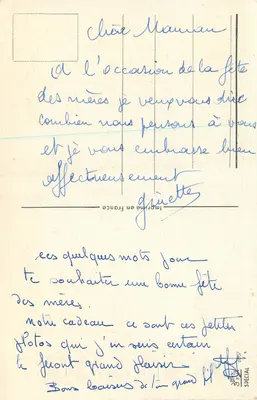 chère Maman
A l'occasion de la fête
des mères je veux vous dire
combien nous pensons à vous
et je vous embrasse bien
affectueusement
Ginette
Imprimé en France
ces quelques mots pour
te souhaiter une bonne fête
des mères.
notre cadeau ce sont ces petites
photos qui j'en suis certain
te feront grand plaisir
Bons baisers de ton grand
SPECIAL